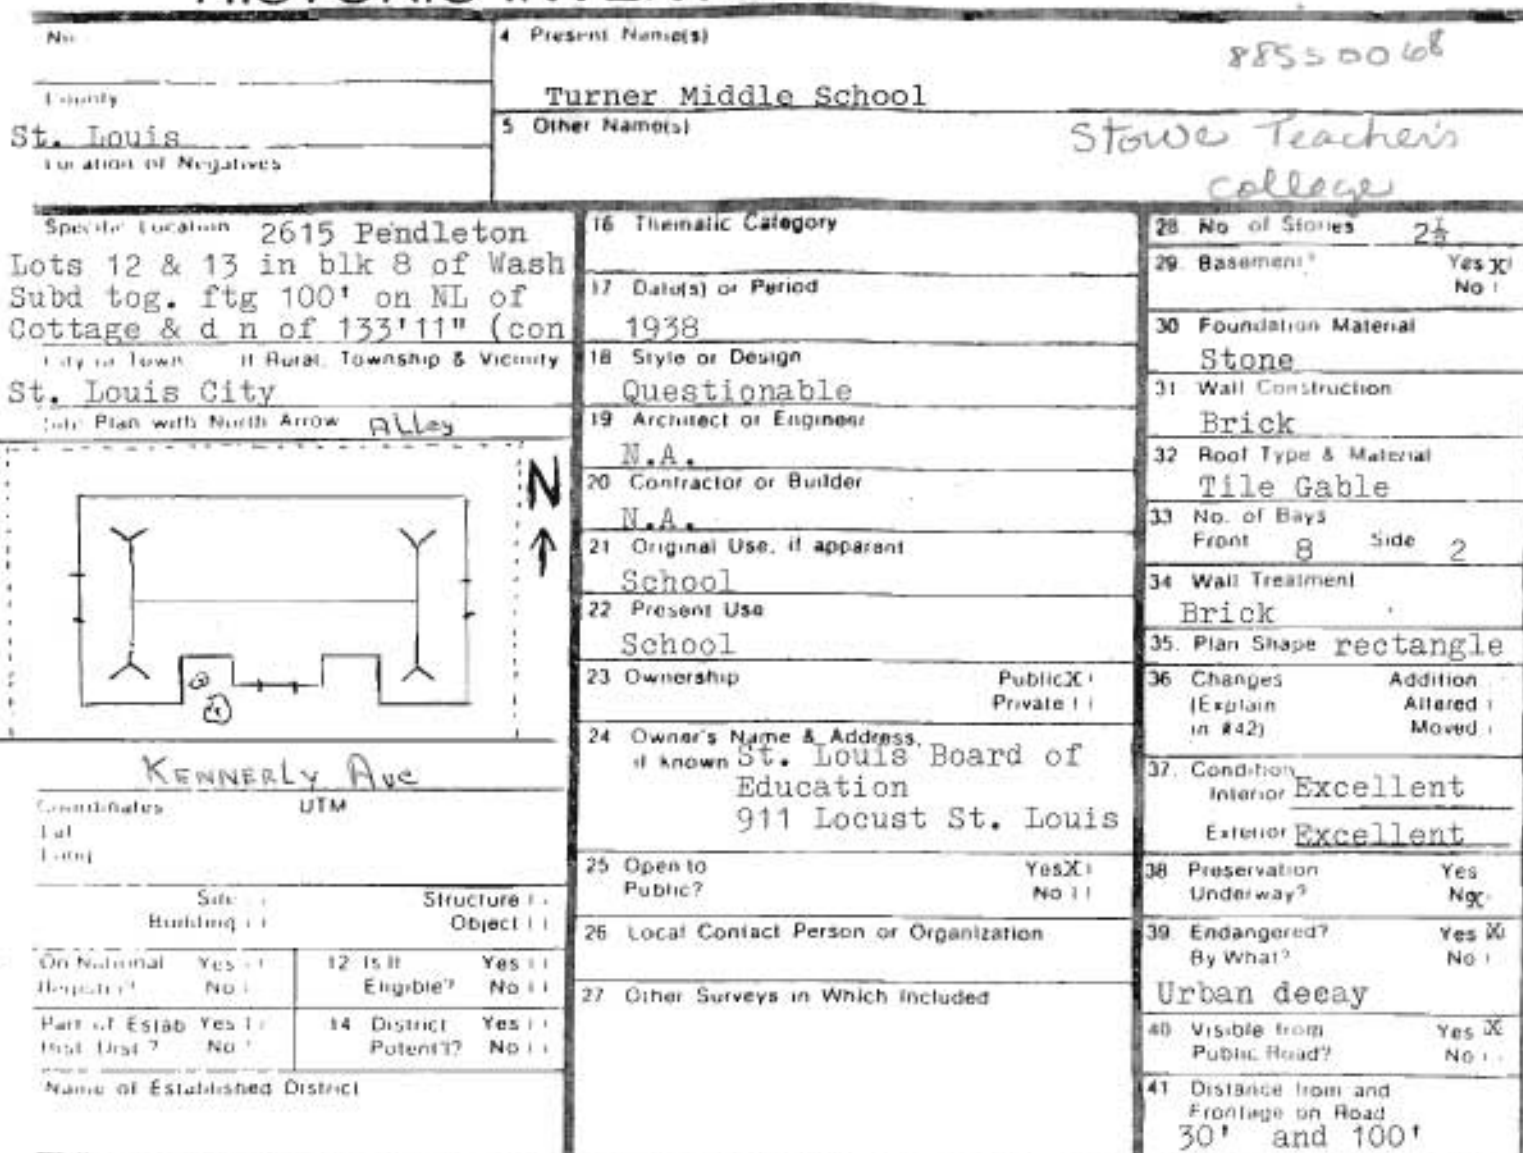 No
4 Present Name(s)
88550068
Turner Middle School
County
St. Louis
5 Other Name(s)
Stowe Teacher's
College
Location of Negatives
Specific Location 2615 Pendleton
Lots 12 & 13 in blk 8 of Wash
Subd tog. ftg 100' on NL of
Cottage & d n of 133'11" (con
City or Town If Rural, Township & Vicinity
St. Louis City
Site Plan with North Arrow Alley
N
Kennerly Ave
Coordinates UTM
Lat
Long
Site Structure
Building Object
On National Yes
Register? No
12 Is It Yes
Eligible? No
Part of Estab Yes
Hist. Dist.? No
14 District Yes
Potent'l? No
Name of Established District
16 Thematic Category
17 Date(s) or Period
1938
18 Style or Design
Questionable
19 Architect or Engineer
N.A.
20 Contractor or Builder
N.A.
21 Original Use, if apparent
School
22 Present Use
School
23 Ownership Public X
Private
24 Owner's Name & Address,
if known St. Louis Board of
Education
911 Locust St. Louis
25 Open to Yes X
Public? No
26 Local Contact Person or Organization
27 Other Surveys in Which Included
28 No. of Stories 2½
29. Basement? Yes X
No
30 Foundation Material
Stone
31. Wall Construction
Brick
32 Roof Type & Material
Tile Gable
33 No. of Bays
Front 8 Side 2
34 Wall Treatment
Brick
35. Plan Shape rectangle
36 Changes Addition
(Explain Altered
in #42) Moved
37. Condition
Interior Excellent
Exterior Excellent
38 Preservation Yes
Underway? No X
39. Endangered? Yes X
By What? No
Urban decay
40 Visible from Yes X
Public Road? No
41 Distance from and
Frontage on Road
30' and 100'